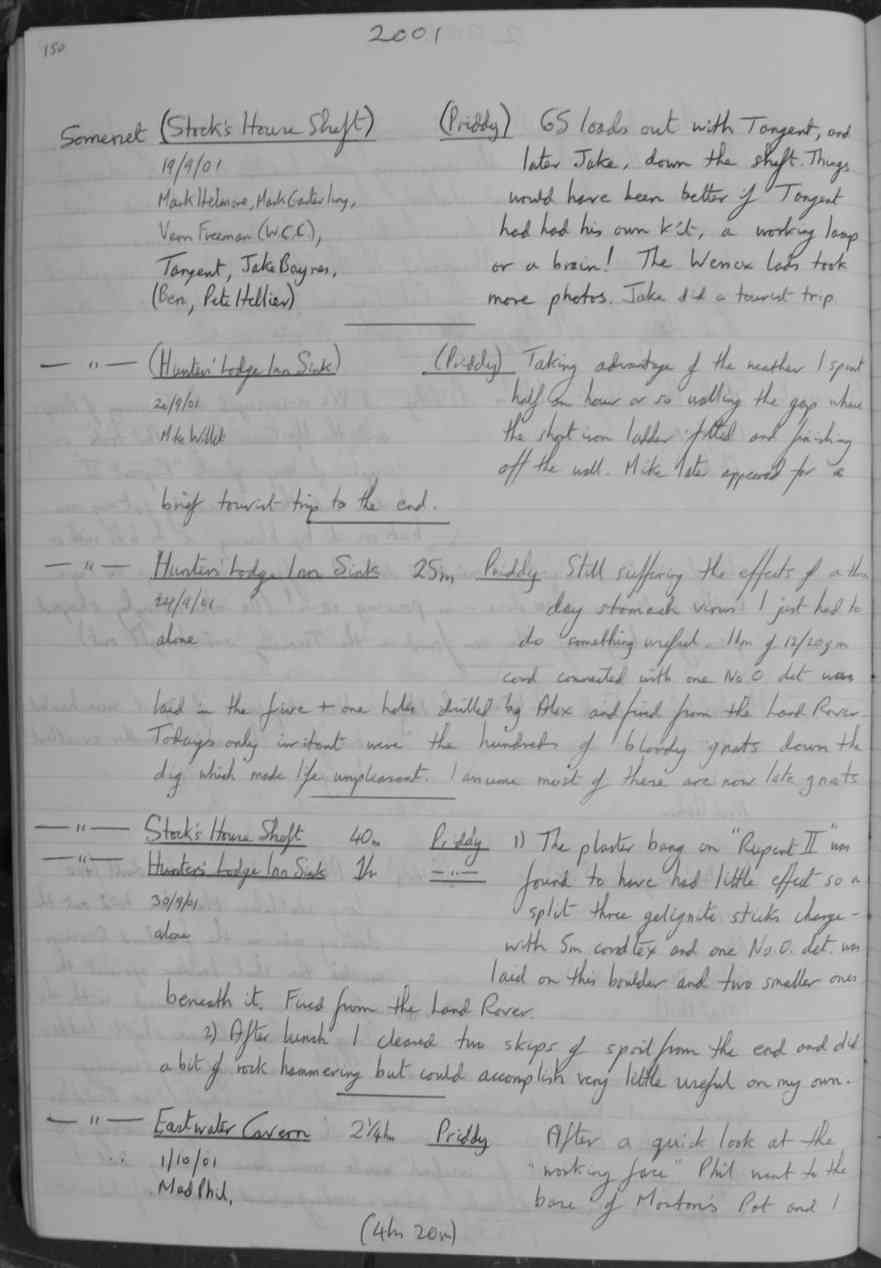 150
2001
Somerset (Stock's House Shaft) (Priddy) 65 loads out with Tangent, and
19/9/01 later Jake, down the shaft. Things
Mark Helmore, Mark would have been better if Tangent
Vern Freeman (W.C.C), had had his own kit, a working lamp
Tangent, Jake Baynes, or a brain! The Wessex lads took
(Ben, Pete Hellier) more photos. Jake did a tourist trip.
— " — (Hunters' Lodge Inn Sink) (Priddy) Taking advantage of the weather I spent
20/9/01 half an hour or so walling the gap where
Mike Willett the short iron ladder fitted and finishing
off the wall. Mike later appeared for a
brief tourist trip to the end.
— " — Hunters' Lodge Inn Sink 25m Priddy Still suffering the effects of a
/9/01 day stomach virus I just had to
alone do something useful. 11m of 12/20gm
cord connected with one No. 0 det was
laid in the five + one holes drilled by Alex and fired from the Land Rover.
Today's only irritant were the hundreds of bloody gnats down the
dig which made life unpleasant. I assume most of these are now late gnats
— " — Stock's House Shaft 40m Priddy 1) The plaster bang on "Rupert II" was
— " — Hunters' Lodge Inn Sink 1h — " — found to have had little effect so a
30/9/01 split three gelignite sticks charge -
alone with 5m cordtex and one No. 0. det. was
laid on this boulder and two smaller ones
beneath it. Fired from the Land Rover.
2) After lunch I cleared two skips of spoil from the end and did
a bit of rock hammering but could accomplish very little useful on my own.
— " — Eastwater Cavern 2¼h Priddy After a quick look at the
1/10/01 "working face" Phil went to the
Mad Phil, base of Morton's Pot and I
(4h 20m)